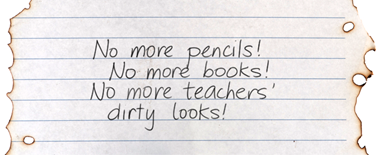 No more pencils!
No more books!
No more teachers'
dirty looks!